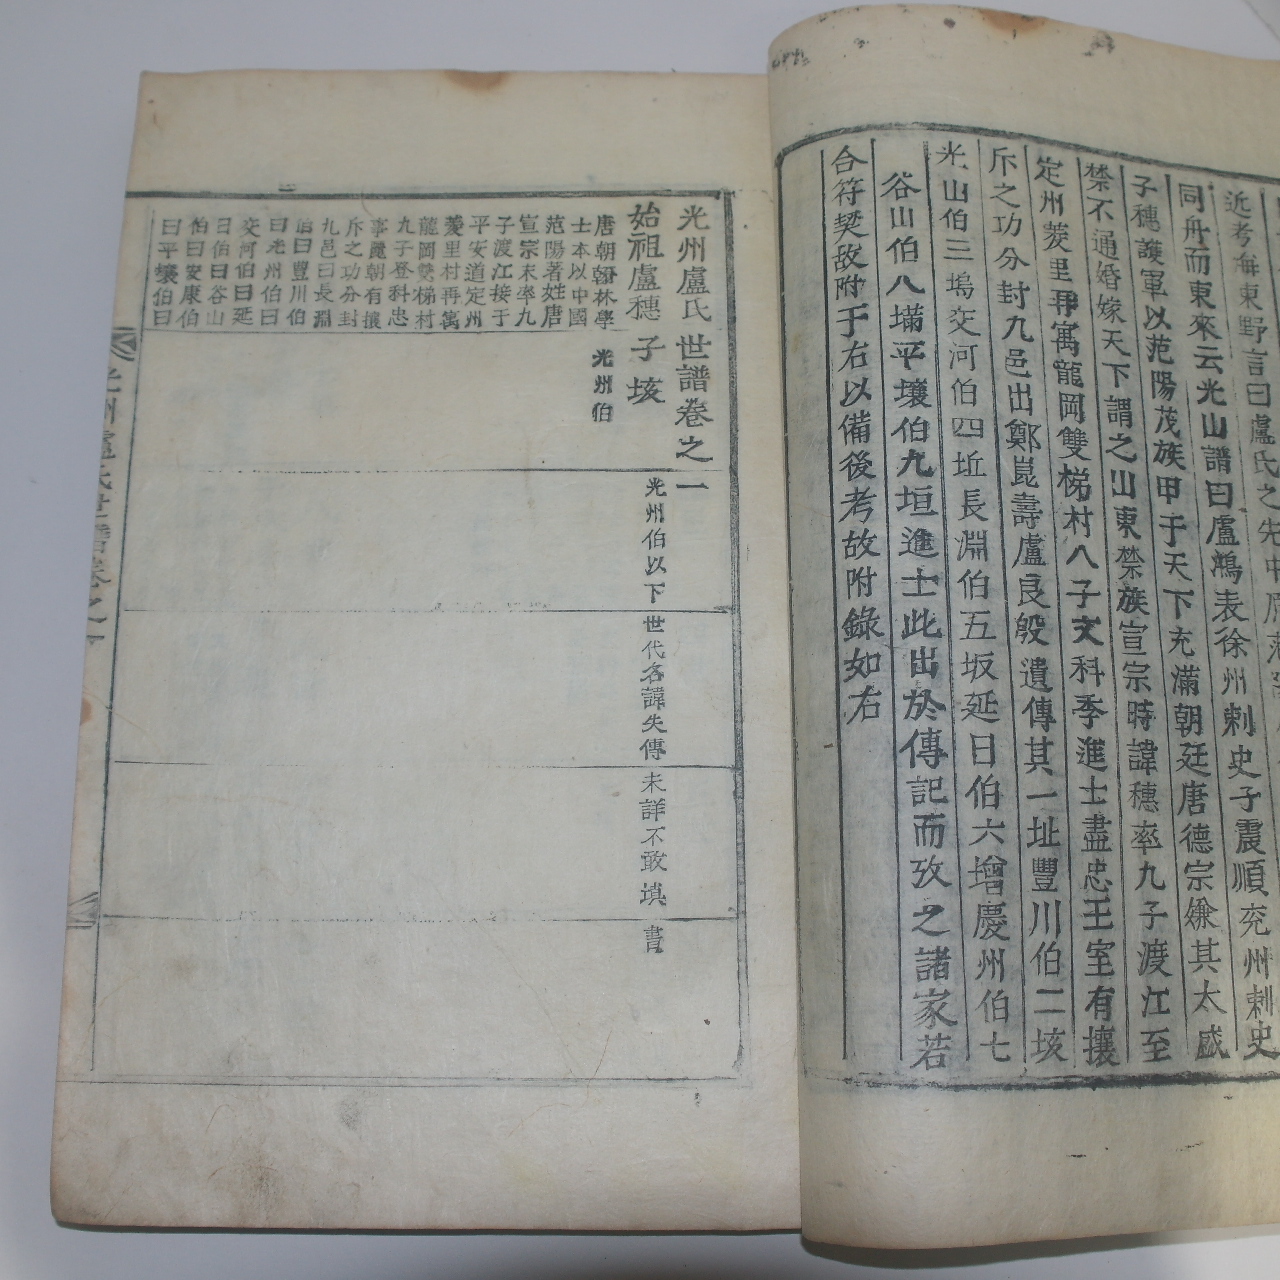 近考海東野言曰盧氏之先中原范
同舟而東來云光山譜曰盧鴻表徐州刺史子震順兖州刺史
子穗護軍以范陽茂族甲于天下充滿朝廷唐德宗嫌其太盛
禁不通婚嫁天下謂之山東禁族宣宗時諱穗率九子渡江至
定州菱里再寓龍岡雙梯村八子文科季進士盡忠王室有攘
斥之功分封九邑出鄭崑壽盧良㲄遺傳其一址豐川伯二垓
光山伯三塢交河伯四坵長淵伯五坂延日伯六增慶州伯七
谷山伯八墻平壤伯九垣進士此出於傳記而攷之諸家若
合符契故附于右以備後考故附錄如右
光州盧氏世譜卷之一
始祖盧穗
唐朝翰林學
士本以中國
范陽著姓唐
宣宗末率九
子渡江接于
平安道定州
菱里村再寓
龍岡雙梯村
九子登科忠
事麗朝有攘
斥之功分封
九邑曰長淵
伯曰豐川伯
曰光州伯曰
交河伯曰延
日伯曰谷山
伯曰安康伯
曰平壤伯曰
子垓
光州伯
光州伯以下
世代名諱失傳
未詳不敢塡
書
光州盧氏世譜卷之一